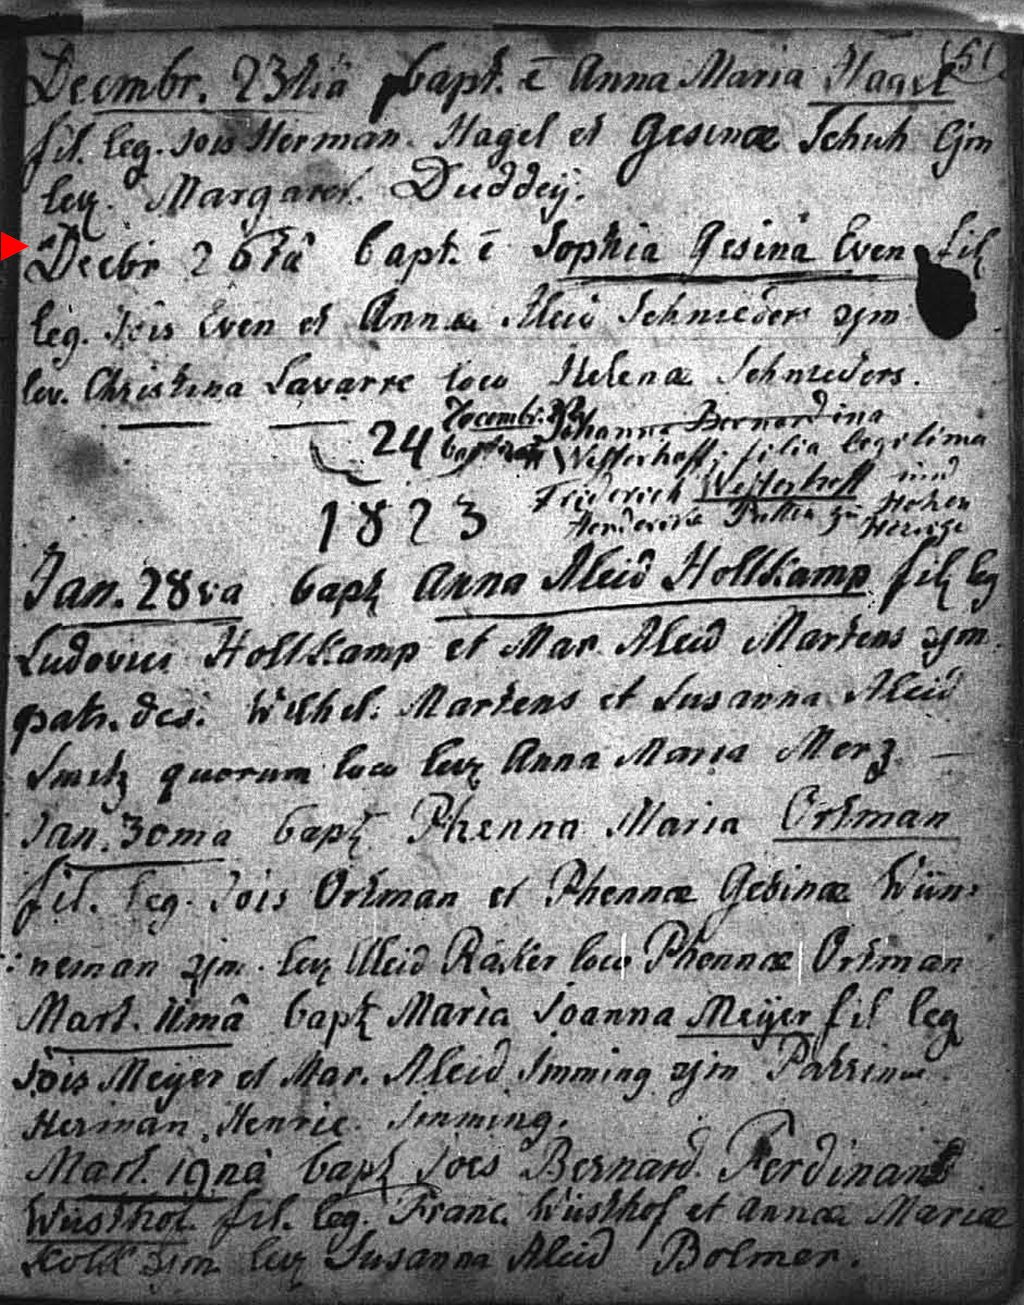 51
Decmbr. 23tia bapt. ē Anna Maria Hagel
fil. leg. Jois Herman. Hagel et Gesinæ Schuh
lev. Margaret. Duddeÿ.
Decbr 26tâ bapt. ē Sophia Gesina Even fil
leg. Jois Even et Annæ Aleid Schnieders
lev. Christina Lavarre loco Helenæ Schnieders.
24 Decembr. Johanna Bernardina
Westerhoff, filia legitima
Friderich Westerhoff und
1823
Jan. 28va bapt Anna Aleid Holtkamp fil leg
Ludovici Holtkamp et Mar. Aleid Martens
patr. des. Wilhel. Martens et Susanna Aleid
quorum loco lev Anna Maria Merz
Jan. 30ma bapt Phenna Maria Ortman
fil. leg. Jois Ortman et Phennæ Gesinæ Wün-
neman lev Aleid loco Phennæ Ortman
Mart. 11mâ bapt Maria Joanna Meÿer fil leg
Jois Meÿer et Mar. Aleid Imming Patrinus
Herman. Henric. Imming.
Mart. 19nâ bapt Joes Bernard. Ferdinand
Wüsthof. fil. leg. Franc. Wüsthof et Annæ Mariæ
Kolk lev Susanna Aleid Bolmer.